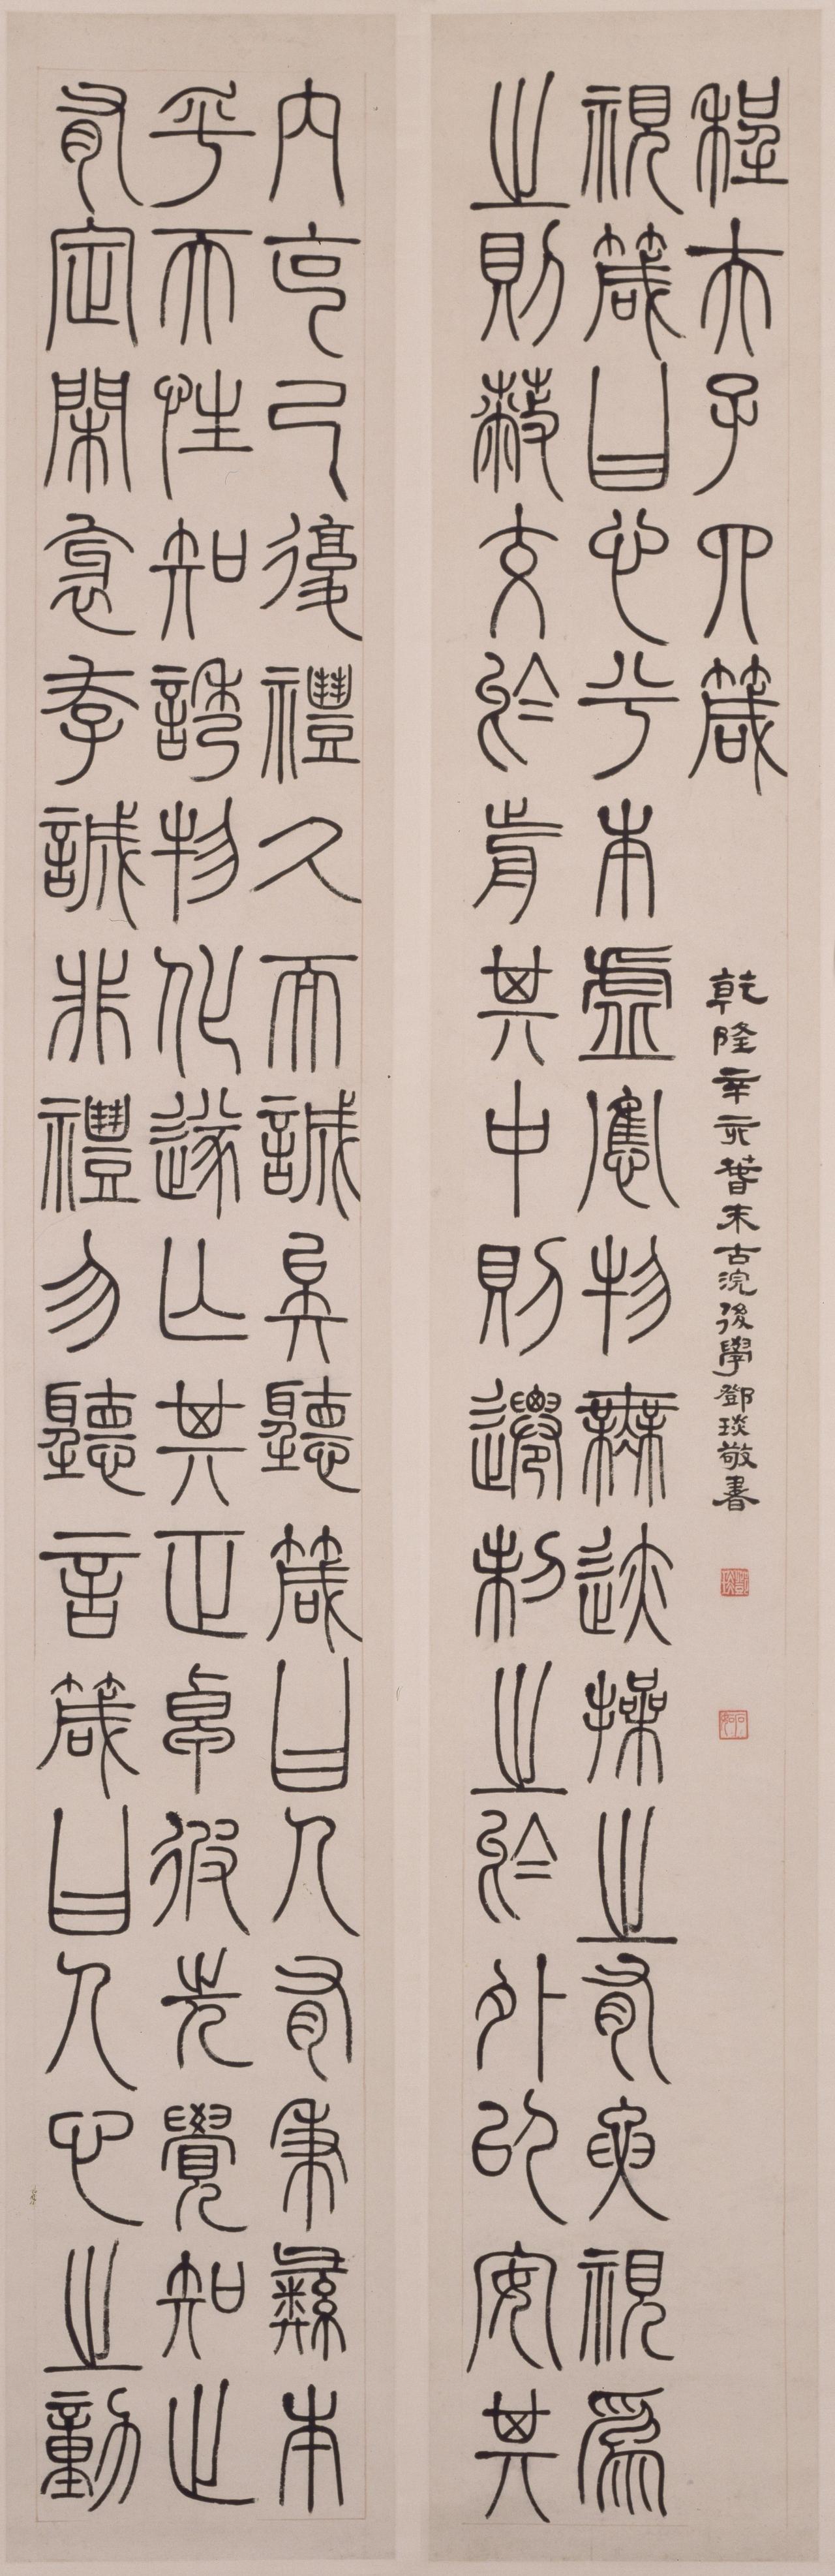 程夫子四箴
乾隆辛亥春末古浣後學鄧琰敬書
視箴曰心兮本虛應物無迹操之有要視為
之則蔽交於前其中則遷制之於外以安其
內克己復禮久而誠矣聽箴曰人有秉彝本
乎天性知誘物化遂亡其正卓彼先覺知止
有定閑邪存誠非禮勿聽言箴曰人心之動